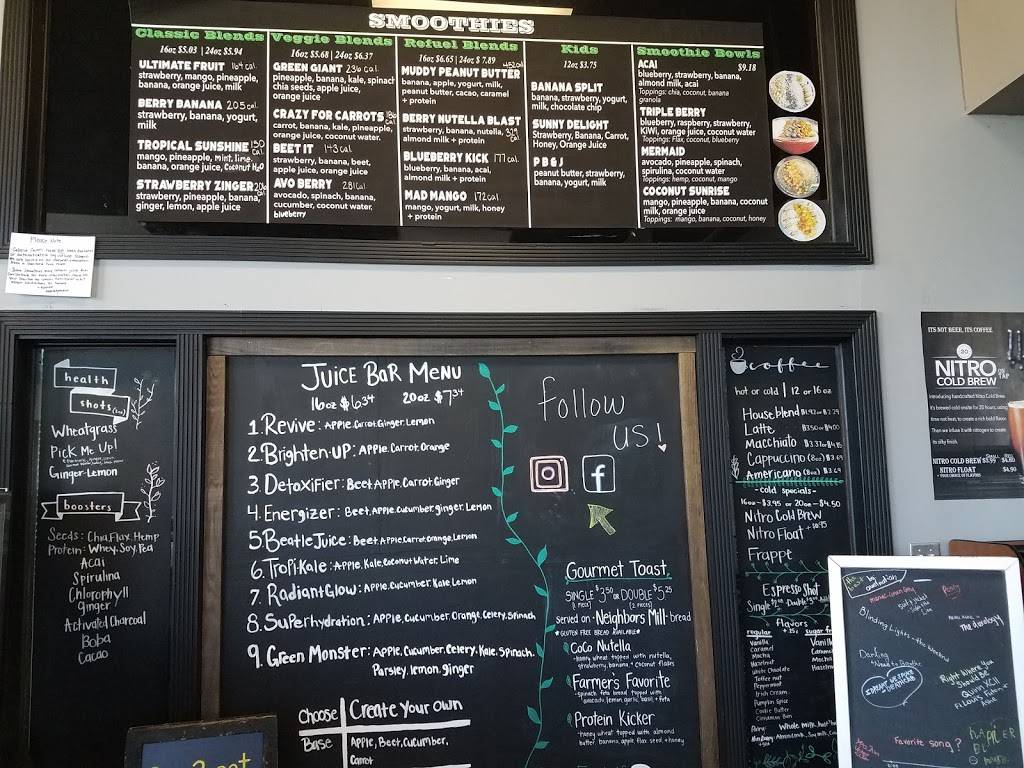 SMOOTHIES
Classic Blends
16oz $5.03 | 24oz $5.94
ULTIMATE FRUIT 164 cal.
strawberry, mango, pineapple,
banana, orange juice, milk
BERRY BANANA 205 cal.
strawberry, banana, yogurt,
milk
TROPICAL SUNSHINE 130 cal
mango, pineapple, mint, lime,
banana, orange juice, Coconut H2O
STRAWBERRY ZINGER
strawberry, pineapple, banana,
ginger, lemon, apple juice
Veggie Blends
16oz $5.68 | 24oz $6.37
GREEN GIANT 236 cal.
pineapple, banana, kale, spinach
chia seeds, apple juice,
orange juice
CRAZY FOR CARROTS
carrot, banana, kale, pineapple,
orange juice, coconut water.
BEET IT 143 cal
strawberry, banana, beet,
apple juice, orange juice
AVO BERRY 281 cal.
avocado, spinach, banana,
cucumber, coconut water.
blueberry
Refuel Blends
16oz $6.65 | 24oz $7.89
MUDDY PEANUT BUTTER 452 cal
banana, apple, yogurt, milk,
peanut butter, cacao, caramel
+ protein
BERRY NUTELLA BLAST
strawberry, banana, nutella,
almond milk + protein
BLUEBERRY KICK 177 cal.
blueberry, banana, acai,
almond milk + protein
MAD MANGO 172 cal
mango, yogurt, milk, honey
+ protein
Kids
12oz $3.75
BANANA SPLIT
banana, strawberry, yogurt,
milk, chocolate chip
SUNNY DELIGHT
Strawberry, Banana, Carrot,
Honey, Orange Juice
P B & J
peanut butter, strawberry,
banana, yogurt, milk
Smoothie Bowls
$9.18
ACAI
blueberry, strawberry, banana,
almond milk, acai
Toppings: chia, coconut, banana
granola
TRIPLE BERRY
blueberry, raspberry, strawberry,
KiWi, orange juice, coconut water
Toppings: Flax, coconut, blueberry
MERMAID
avocado, pineapple, spinach,
spirulina, coconut water
Toppings: hemp, coconut, mango
COCONUT SUNRISE
mango, pineapple, banana, coconut
milk, orange juice
Toppings: mango, banana, coconut, honey
Please Note
health
shots
Wheatgrass
Pick Me Up!
Ginger-Lemon
boosters
Seeds: Chia, Flax, Hemp
Protein: Whey, Soy, Pea
Acai
Spirulina
Chlorophyll
Ginger
Activated Charcoal
Boba
Cacao
JUICE BAR MENU
16oz $6.34 20oz $7.34
1. Revive: Apple. Carrot. Ginger. Lemon
2. Brighten-UP: Apple. Carrot. Orange
3. Detoxifier: Beet. Apple. Carrot. Ginger
4. Energizer: Beet. Apple. Cucumber. ginger. Lemon
5. Beatle Juice: Beet. Apple. Carrot. Orange. Lemon
6. Tropi-Kale: Apple. Kale. Coconut Water. Lime
7. Radiant Glow: Apple. Cucumber. Kale. Lemon
8. Superhydration: Apple. Cucumber. Orange. Celery. Spinach
9. Green Monster: Apple. Cucumber. Celery. Kale. Spinach.
Parsley. lemon. ginger
Choose Create Your Own
Base Apple, Beet, Cucumber,
Carrot
follow
us!
Gourmet Toast
SINGLE $3.50 or DOUBLE $5.25
(1 piece) (2 pieces)
served on Neighbors Mill bread
*GLUTEN FREE BREAD AVAILABLE*
CoCo Nutella
-honey wheat topped with nutella,
strawberry, banana + coconut flakes
Farmer's Favorite
-spinach feta bread topped with
avocado, lemon, garlic, basil + feta
Protein Kicker
-honey wheat topped with almond
butter, banana, apple, flax seed + honey
coffee
hot or cold | 12 or 16 oz
House blend $1.92 or $2.29
Latte $3.50 or $4.00
Macchiato
Cappuccino (8oz) $3.69
Americano (8oz) $3.69
-cold specials-
16oz-$3.95 or 20oz-$4.50
Nitro Cold Brew
Nitro Float
Frappe
Espresso Shot
Single Double
flavors
regular sugar fr
Vanilla Vanill
Caramel
Mocha Mocha
Hazelnut
White Chocolate
Toffee nut
Peppermint
Irish Cream
Pumpkin Spice
Cookie Butter
Cinnamon Bun
IT'S NOT BEER, ITS COFFEE.
20
NITRO ON TAP
COLD BREW
Introducing handcrafted Nitro Cold Brew.
NITRO COLD BREW
NITRO FLOAT $4.90
Blinding Lights - the Weeknd
Right Where You
Should Be
Quinn XCII
Favorite song?